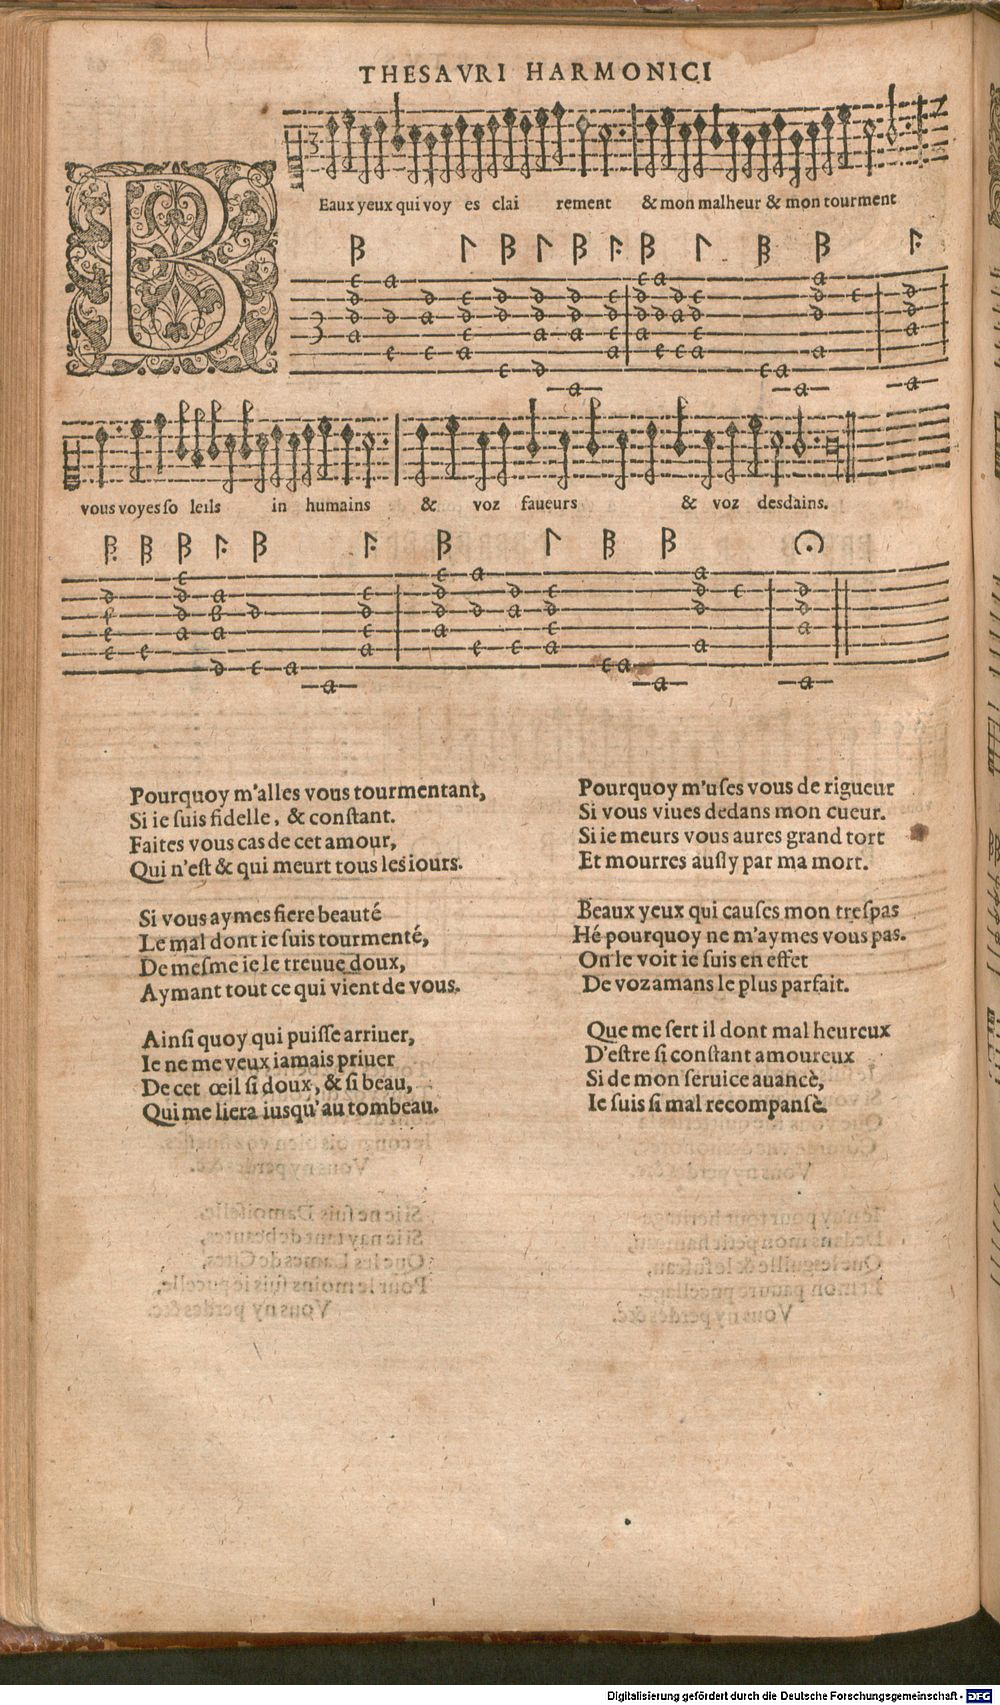 THESAVRI HARMONICI
BEaux yeux qui voy es clai rement & mon malheur & mon tourment
vous voyes so leils in humains & voz faueurs & voz desdains.
Pourquoy m'alles vous tourmentant,
Si ie suis fidelle, & constant.
Faites vous cas de cet amour,
Qui n'est & qui meurt tous les iours.
Si vous aymes fiere beauté
Le mal dont ie suis tourmenté,
De mesme ie le treuue doux,
Aymant tout ce qui vient de vous.
Ainsi quoy qui puisse arriuer,
Ie ne me veux iamais priuer
De cet œil si doux, & si beau,
Qui me liera iusqu'au tombeau.
Pourquoy m'uses vous de rigueur
Si vous viues dedans mon cueur.
Si ie meurs vous aures grand tort
Et mourres aussy par ma mort.
Beaux yeux qui causes mon trespas
Hé pourquoy ne m'aymes vous pas.
On le voit ie suis en effet
De voz amans le plus parfait.
Que me sert il dont mal heureux
D'estre si constant amoureux
Si de mon seruice auancè,
Ie suis si mal recompansè.
Digitalisierung gefördert durch die Deutsche Forschungsgemeinschaft - DFG